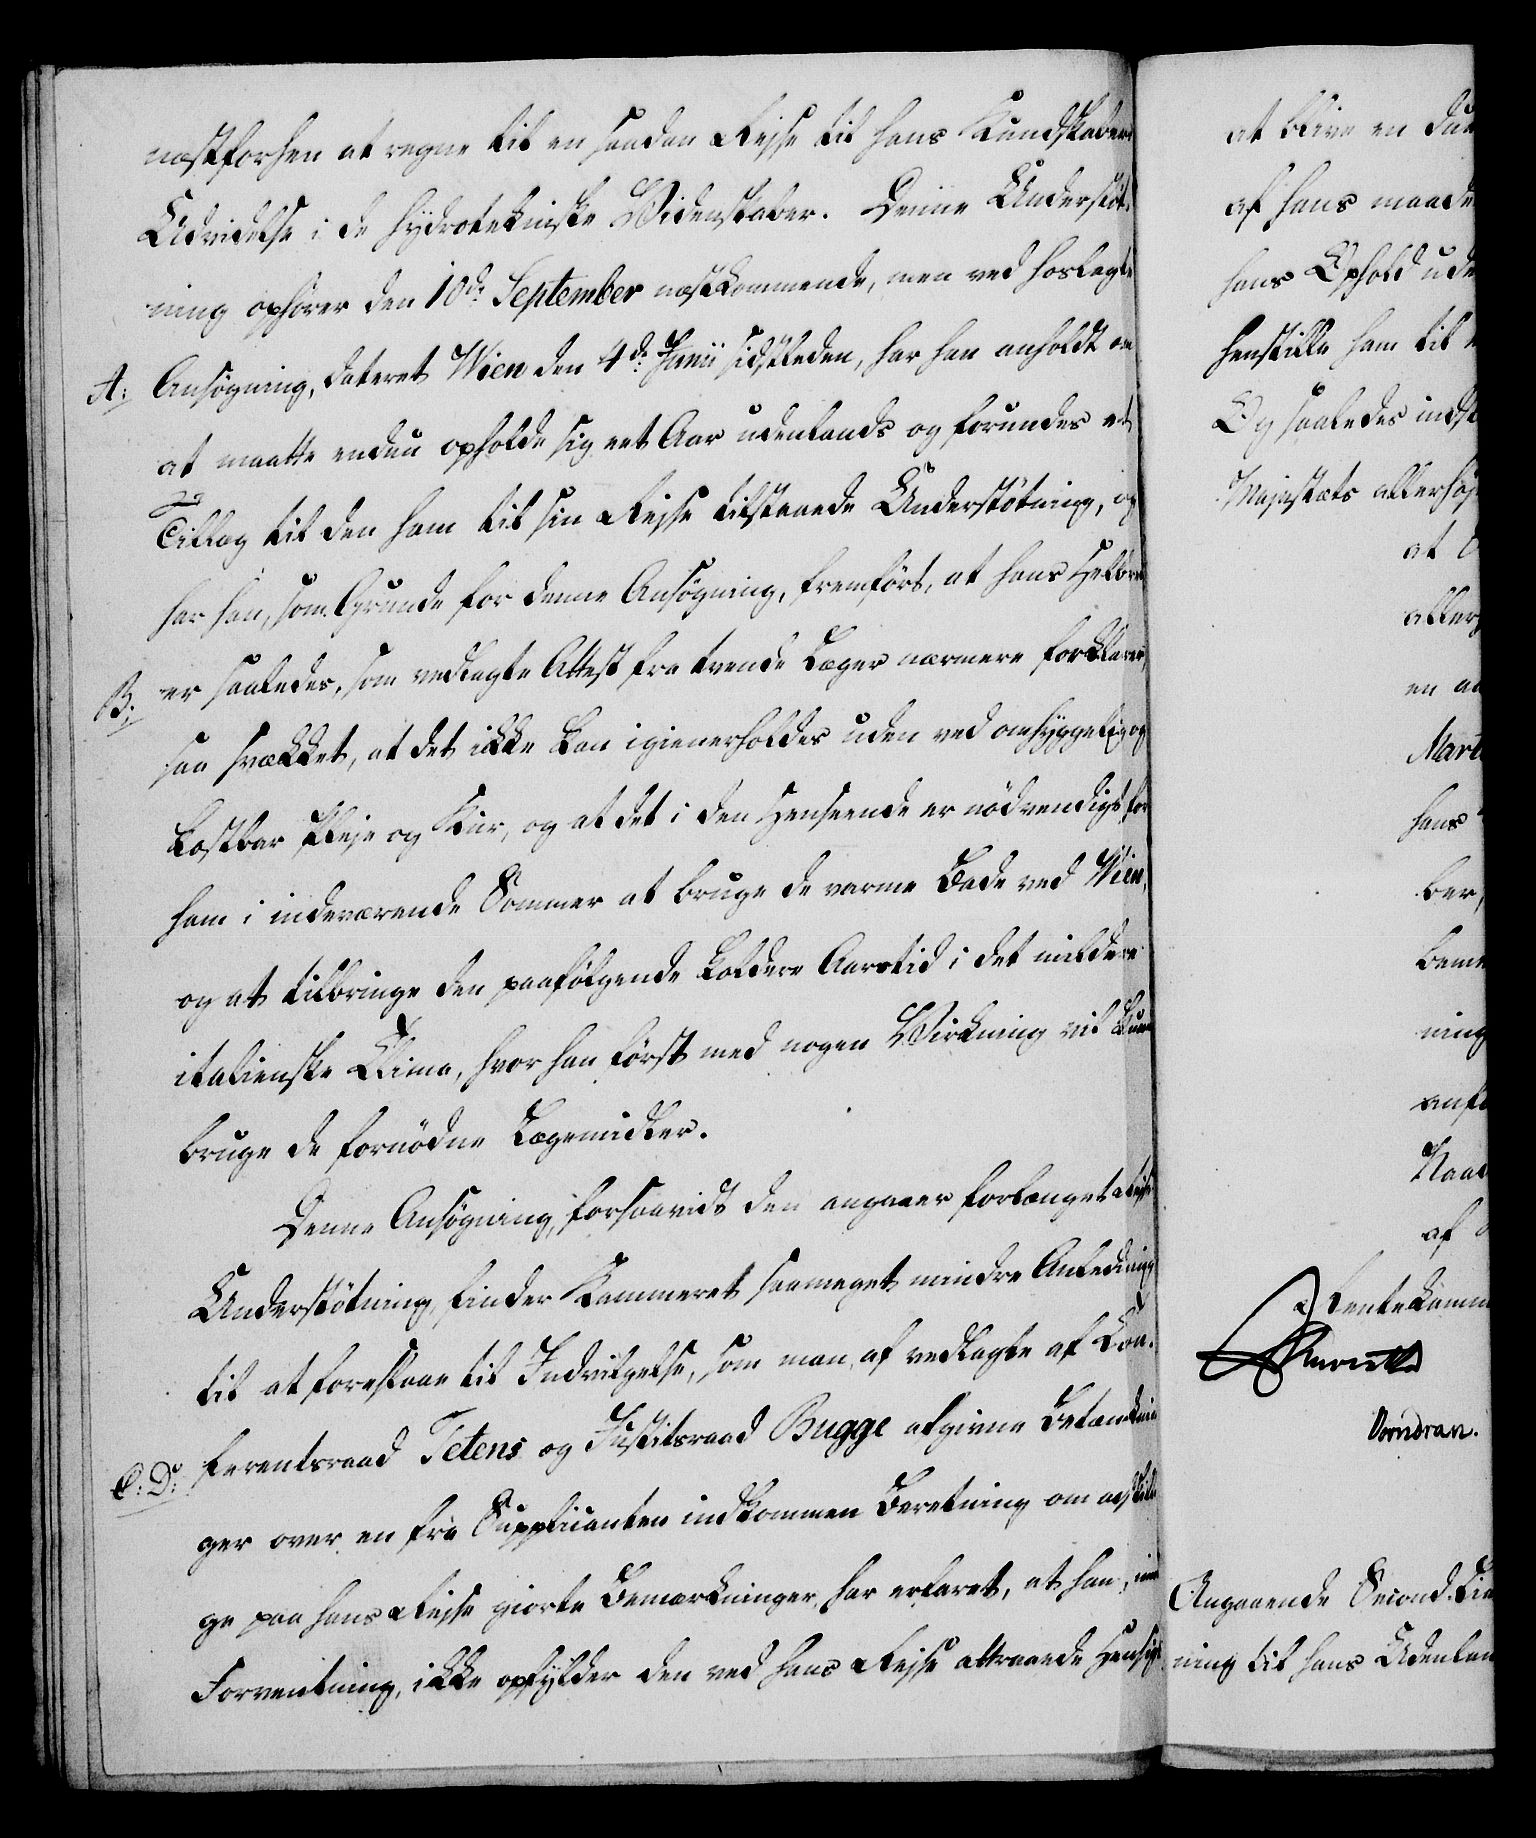 næstforhen at regne til en saadan Rejse til hans Kundskabers
Udvidelse i de hydrotekniske Videnskaber. Denne Understöt-
ning ophører den 10de September næstkommende, men ved hoslagte
A: Ansögning, dateret Wien den 4de Junii sidstleden, har han anholdt om
at maatte endnu opholde sig eet Aar udenlands og forundes et
Tillæg til den ham til sin Rejse tilstaaede Understötning, og
har han, som Grunde for denne Ansögning, fremfört, at hans Helbred
B: er saaledes, som vedlagte Attest fra tvende Læger nærmere forklarer,
saa svækket, at det ikke kan igienerholdes uden ved omhyggelig og
kostbar Pleje og Kur, og at det i den Henseende er nödvendigt for
ham i indeværende Sommer at bruge de varme Bade ved Wien,
og at tilbringe den paafölgende koldere Aarstid i det mildere
italienske Clima, hvor han först med nogen Virkning vil kunne
bruge de fornödne Lægemidler.
Denne Ansögning, forsaavidt den angaaer forlænget Rejse
Understötning, finder Kammeret saameget mindre Anledning
til at foreslaae til Indvilgelse, som man af vedlagte af Con-
ferentsraad Tetens og Justitsraad Bugge afgivne Betænknin
C: D: ger over en fra Supplicanten indkommen Beretning om adskilli
ge paa hans Rejse giorte Bemærkninger, har erfaret, at han, imod
Forventning, ikke opfylder den ved hans Rejse attraaede Hensigt
at blive en due
af hans maade
hans Ophold ude
henstille ham til
Og saaledes indst
Majestæts allerhöj
at
allerg
en aa
Mart
hans
ber,
beme
ning
anfö
Naad
af
Rentekamm
Vorndran.
Angaaende Second Lie
ning til hans Udenlan